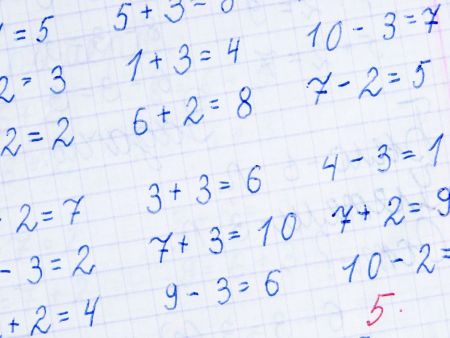 = 5
2 = 3
2 = 2
- 2 = 7
- 3 = 2
+ 2 = 4
5 + 3 =
1 + 3 = 4
6 + 2 = 8
3 + 3 = 6
7 + 3 = 10
9 - 3 = 6
10 - 3 = 7
7 - 2 = 5
4 - 3 = 1
7 + 2 = 9
10 - 2 =
5.